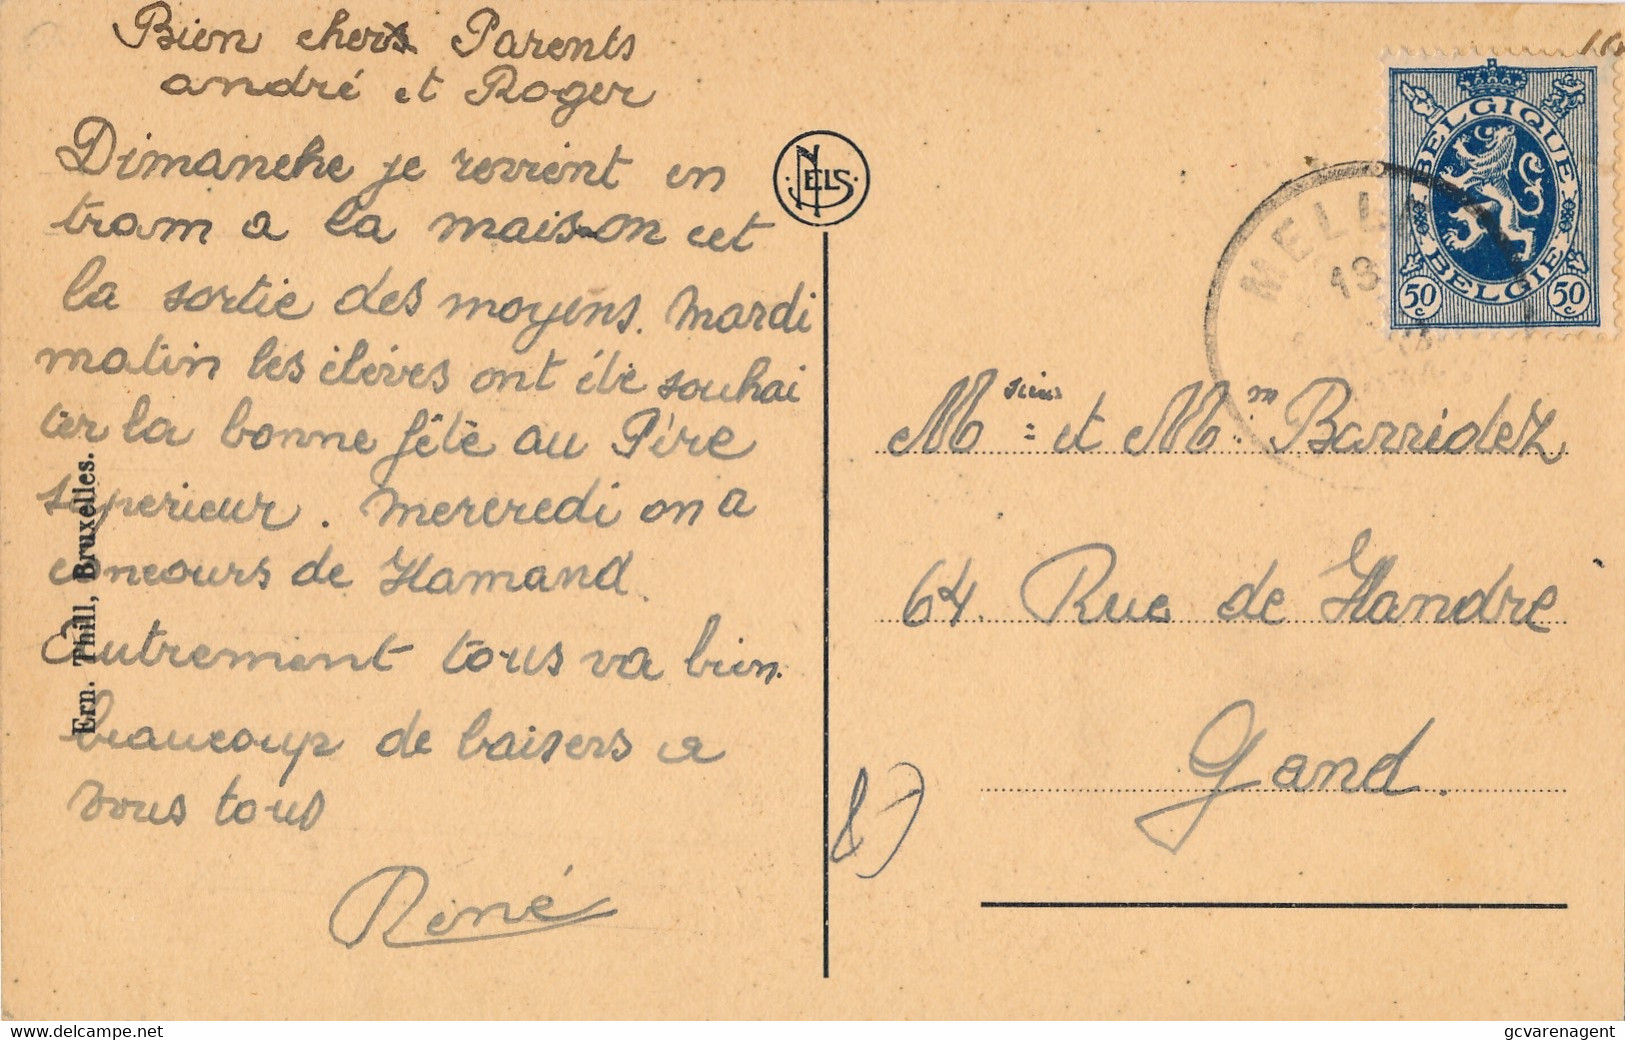 Bien chers Parents
andré et Roger
Dimanche je revient en
tram a la maison cet
la sortie des moyens. Mardi
matin les élèves ont été souhai
ter la bonne fête au Père
superieur. Mercredi on a
concours de Flamand.
Autrement tous va bien.
beaucoup de baisers a
vous tous
René
Ern. Thill, Bruxelles.
NELS
BELGIQUE
BELGIE
50 c
50 c
MELLE
13
Msieur et Mm Barridez
64 Rue de Flandre
Gand.
delcampe.net
gcvarenagent